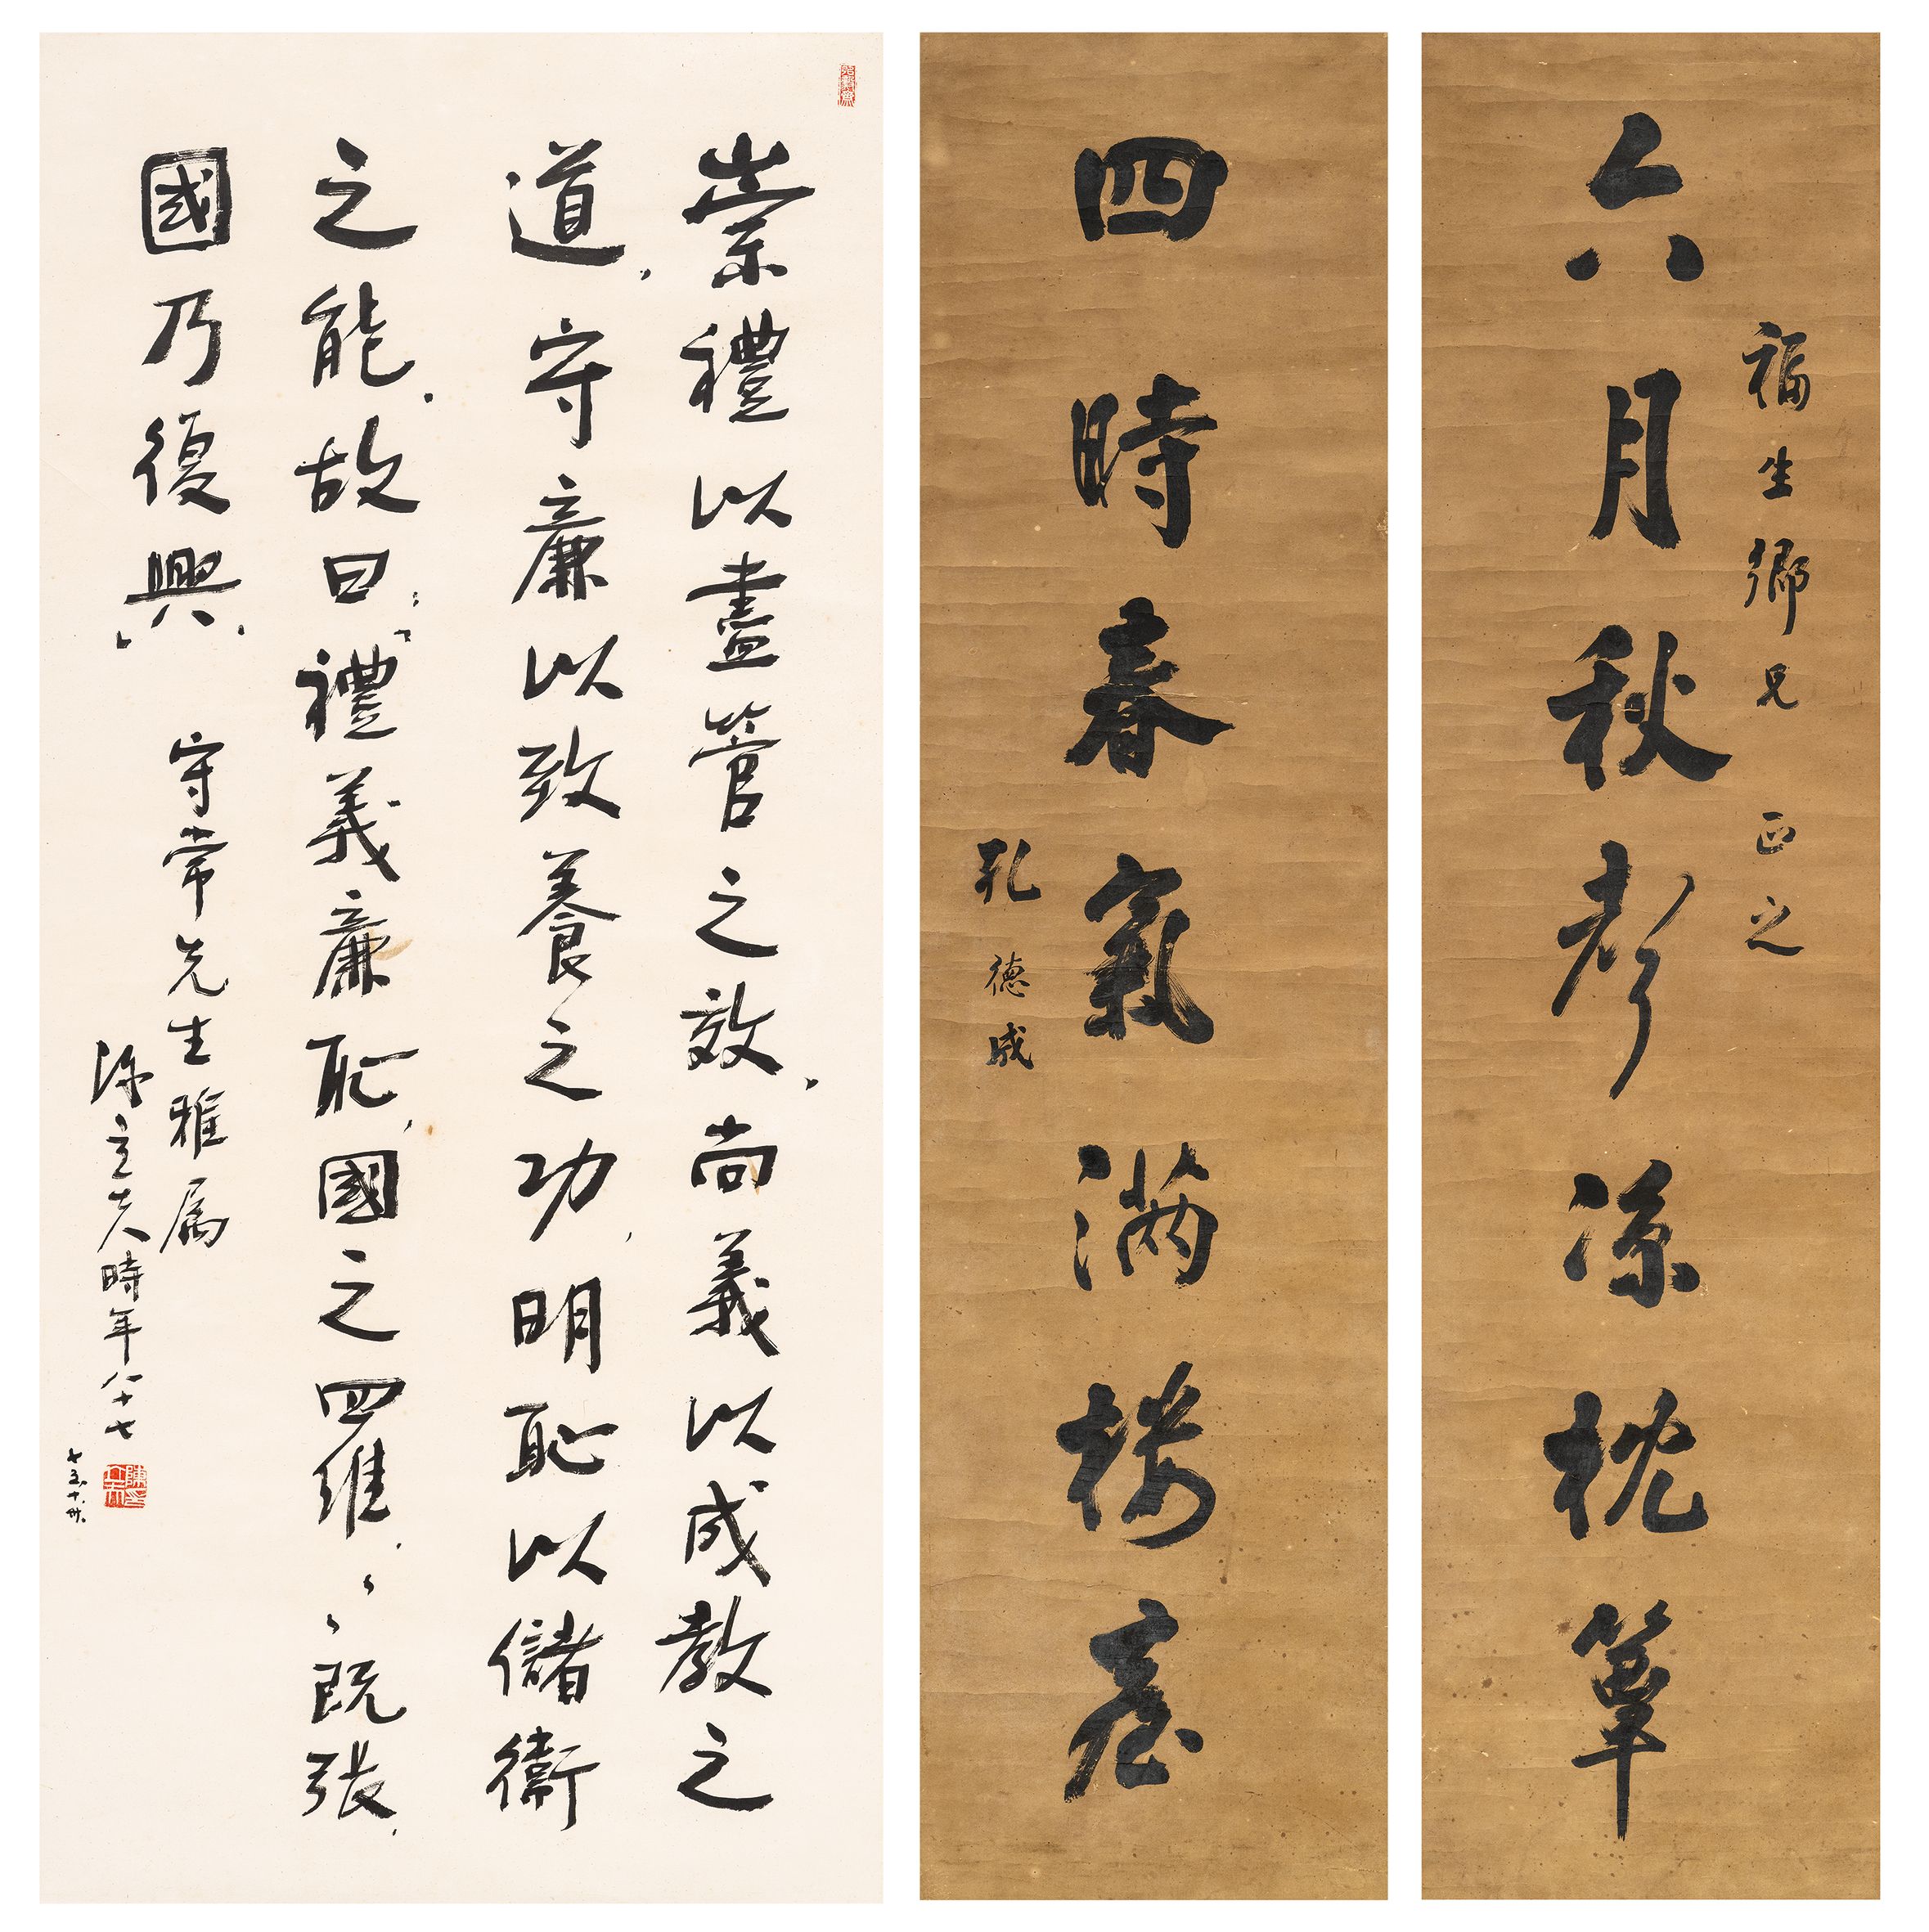 六月秋聲涼枕簟
福生鄉兄 正之
四時春氣滿樓臺
孔德成
崇禮以盡管之效，尚義以成教之
道，守廉以致養之功，明恥以儲衛
之能，故曰：「禮義廉恥，國之四維，、、既張，
國乃復興。」
守常先生雅屬
陳立夫時年八十七
七五、十、卅。